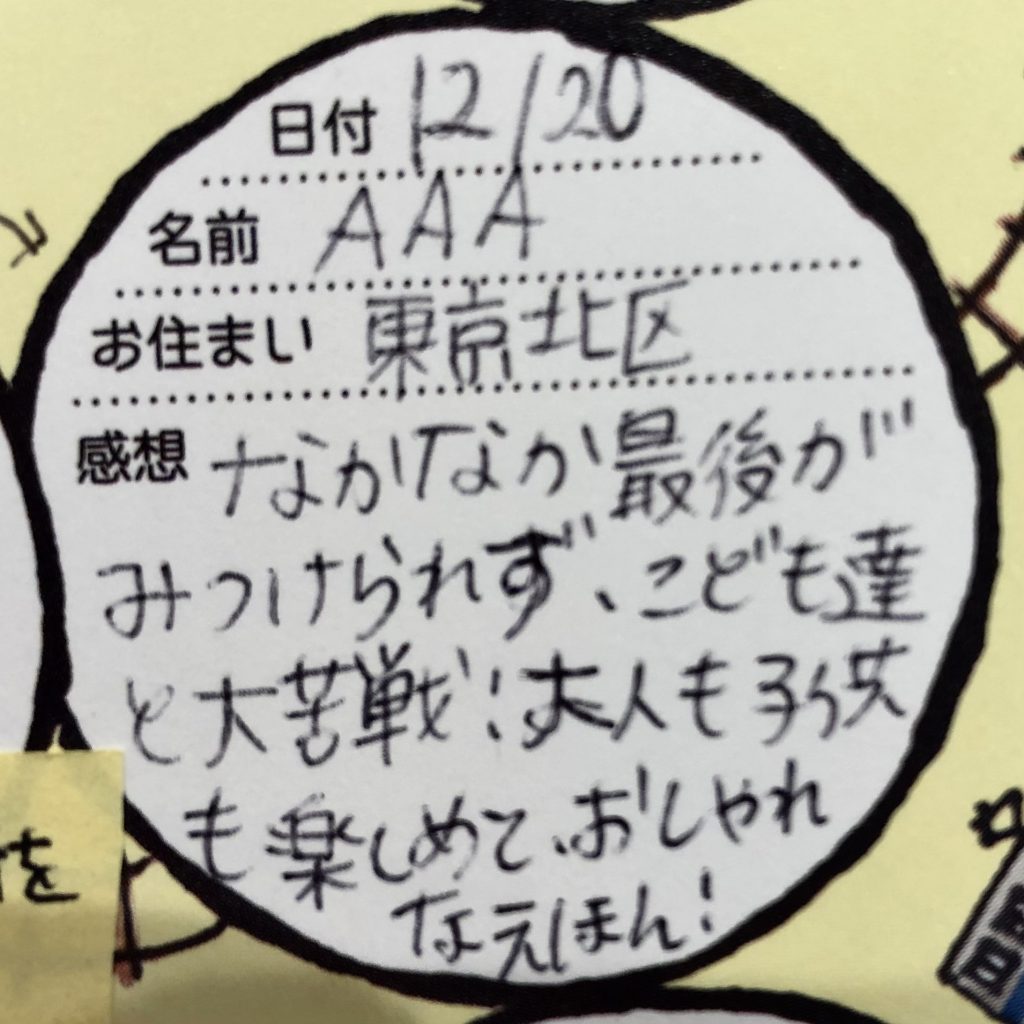 日付 12/20
名前 AAA
お住まい 東京北区
感想 なかなか最後が
みつけられず、こども達
と大苦戦!大人も子ら供
も楽しめて、おしゃれ
なえほん!
を